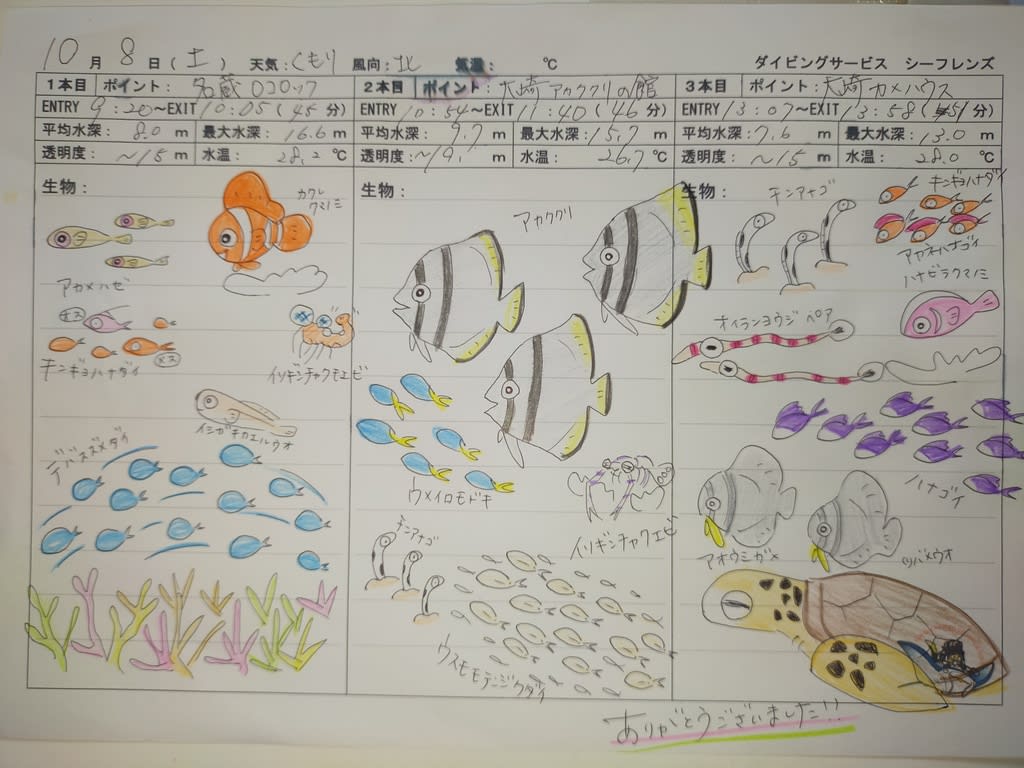 10月 8日(土) 天気:くもり 風向:北 気温: ℃ ダイビングサービス シーフレンズ
1本目 ポイント: 名蔵ロロロック
ENTRY 9:20~EXIT 10:05(45分)
平均水深: 8.0 m 最大水深: 16.6 m
透明度: ~15 m 水温: 28.2 ℃
生物:
カクレ
クマノミ
アカメハゼ
オス
メス
キンギョハナダイ
イソギンチャクモエビ
イシガキカエルウオ
デバスズメダイ
2本目 ポイント: 大崎アカククリの館
ENTRY 10:54~EXIT 11:40(46分)
平均水深: 9.7 m 最大水深: 15.7 m
水温: 26.7 ℃
生物:
アカククリ
ウメイロモドキ
イソギンチャクエビ
チンアナゴ
ウスモモテンジクダイ
3本目 ポイント: 大崎カメハウス
ENTRY 13:07~EXIT 13:58(51分)
平均水深: 7.6 m 最大水深: 13.0 m
透明度: ~15 m 水温: 28.0 ℃
生物:
チンアナゴ
キンギョハナダイ
アカネハナゴイ
ハナビラクマノミ
オイランヨウジ ペア
ハナゴイ
アオウミガメ
ツバメウオ
ありがとうございました!!